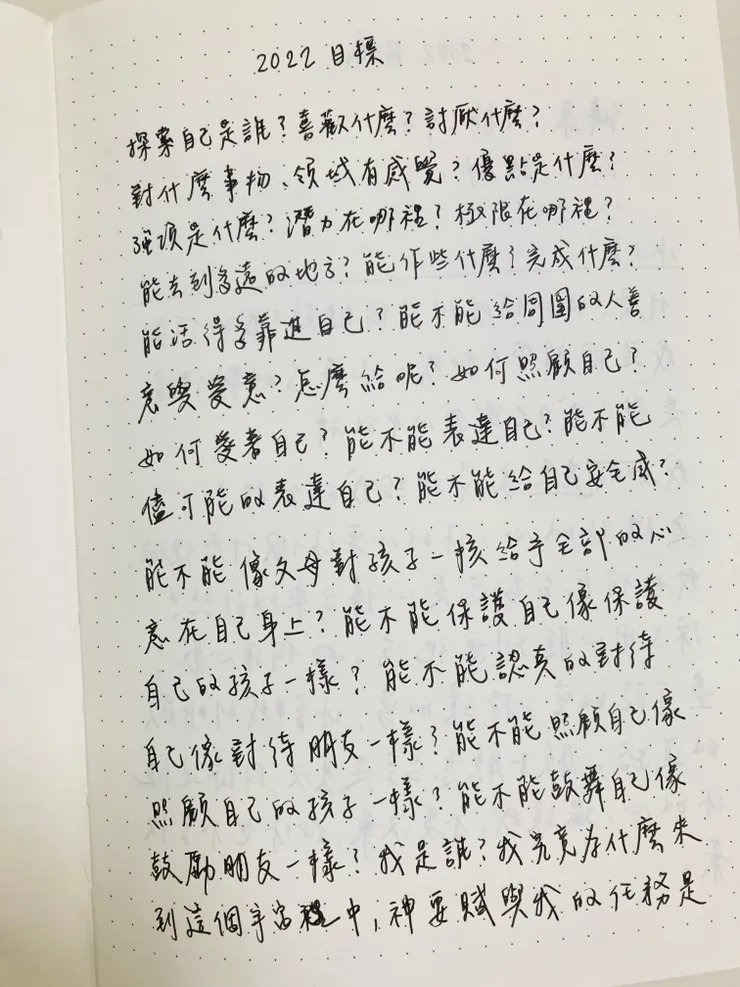 2022 目標
探索自己是誰？喜歡什麼？討厭什麼？
對什麼事物、領域有感覺？優點是什麼？
強項是什麼？潛力在哪裡？極限在哪裡？
能去到多遠的地方？能作些什麼？完成什麼？
能活得多靠近自己？能不能給周圍的人善
意與愛意？怎麼給呢？如何照顧自己？
如何愛著自己？能不能表達自己？能不能
儘可能的表達自己？能不能給自己安全感？
能不能像父母對孩子一樣給予全部的心
意在自己身上？能不能保護自己像保護
自己的孩子一樣？能不能認真的對待
自己像對待朋友一樣？能不能照顧自己像
照顧自己的孩子一樣？能不能鼓舞自己像
鼓勵朋友一樣？我是誰？我究竟為什麼來
到這個宇宙中，神要賦與我的任務是